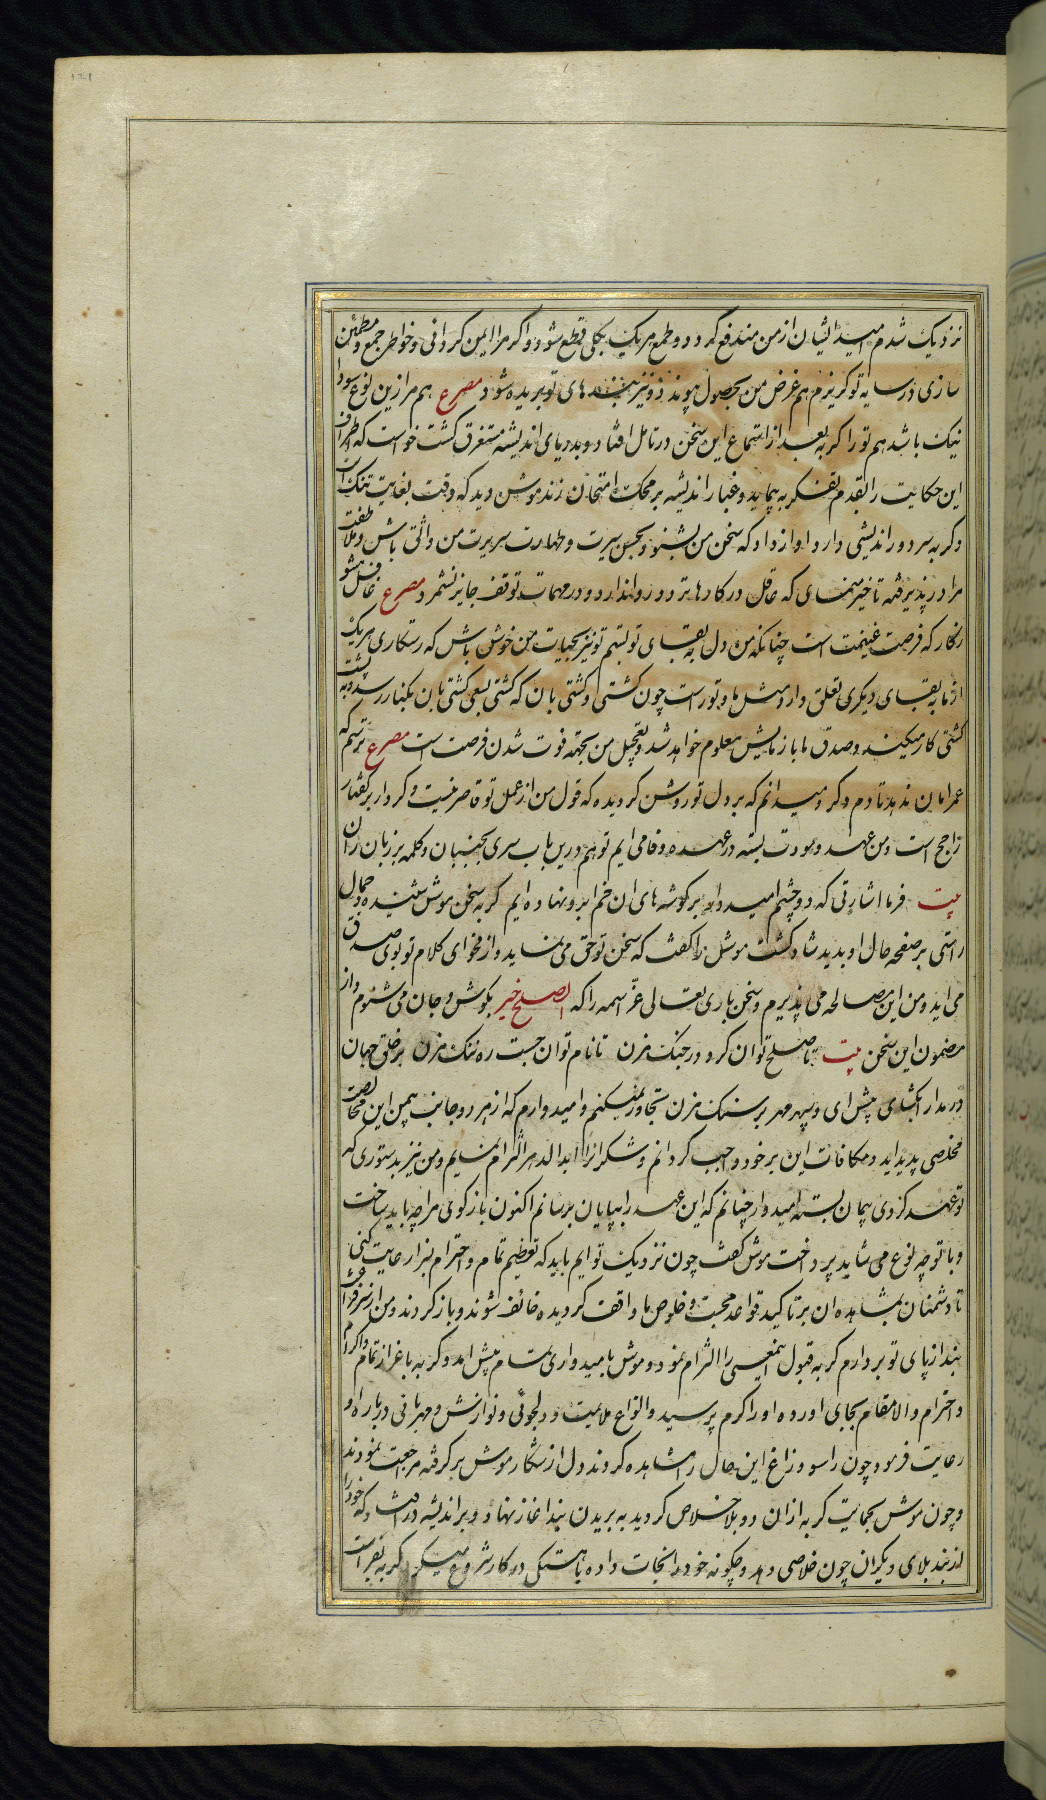 نزدیک شدم امید ایشان از من مندفع گردد و طمع هریک بکلی قطع شود و اگر مرا ایمن گردانی و خواطر جمع و مطمئن
سازی در سایه تو گریزم هم غرض من بحصول پیوندد و نیز بندهای تو بریده شود مصرع هم مرا زین نوع سود
نیک باشد هم تو را گربه بعد از استماع این سخن در تامل افتاد و بدریای اندیشه مستغرق گشت خواست که اطراف
این حکایت را بقدم تفکر به پیماید و غبار اندیشه بر محک امتحان زند موش دید که وقت بغایت تنک است
و گربه سر دور اندیشی دارد اواز داد که سخن من بشنو و بحسن سیرت و طهارت سریرت من واثق باش و ملاطفت
مرا در پذیرفته تاخیر منمای که عاقل در کارها تردد روا ندارد و در مهمات توقف جایز نشمرد مصرع غافل مشو
ز کار که فرصت غنیمت است چنانکه من دل به بقای تو نهم تو نیز بحیات من خوش باش که رستکاری هریک
از ما به بقای دیگری تعلق دارد و مثل ما و تو راست چون کشتی و کشتی بان که کشتی بسعی کشتی بان بکنار رسد و به پشت
کشتی کار میکند و صدق ما بازمایش معلوم خواهد شد و تعجیل من بجهة فوت شدن فرصت است مصرع ترسم که
عمر امان ندهد تا دم دگر و میدانم که بر دل تو روشن گردیده که قول من از عمل تو قاصر نیست و کردار بر گفتار
راجح است و من عهد و مودت بسته در عهده وفا می ایم تو هم درین باب سری بجنبان و کلمه بر زبان ران
بیت فرما اشارتی که دو چشم امیدوار بر گوشه های ان خم ابرو نهاده ایم گربه سخن موش شنیده و جمال
راستی بر صفحه حال او بدید شاد گشت موش را گفت که سخن تو حق می نماید و از فحوای کلام تو بوی صدق
می اید و من این مصالحه می پذیرم و سخن باری تعالی عز اسمه را که الصلح خیر بگوش و جان می شنوم و از
مضمون این سخن بیت تا صلح توان کرد در جنگ مزن تا نام توان جست ره ننگ مزن بر خلق جهان
در مدارا بگشای پیش ای و سپهر مهر بر سنگ مزن تجاوز نمیکنم و امیدوارم که از هر دو جانب بیمن این مخالصت
مخلصی پدید اید و مکافات این بر خود واجب گردانم و شکر انرا ابد الدهر التزام نمایم و من نیز بدستوری که
تو عهد کردی پیمان بستم امیدوار چنانم که این عهد را بپایان برسانم اکنون بازگوی مرا چه باید ساخت
و با تو چه نوع می شاید پرداخت موش گفت چون نزدیک تو ایم باید که تعظیم تمام و احترام بسزا رعایت کنی
تا دشمنان بمشاهده ان بر تاکید قواعد محبت و خلوص ما واقف گردیده خائف شوند و باز گردند و من از سر فراغت
بند از پای تو بردارم گربه قبول اینمعنی را التزام نمود و موش بامیدواری تمام پیش امد و گربه با اعزاز تمام و اکرام
و احترام و الا مقام بجای اورده او را گرم پرسید و انواع ملایمت و دلجوئی و نوازش و مهربانی درباره او
رعایت فرمود چون راسو و زاغ این حال را مشاهده کردند دل از شکار موش برگرفته مراجعت نمودند
و چون موش بحمایت گربه از ان دو بلا خلاص گردید به بریدن بند اغاز نهاد و در اندیشه در افتاد که خود را
از بند بلای دیگران چون خلاصی دهد و چگونه خود را نجات داده باهستکی در کار شروع میکرد گربه بفراست